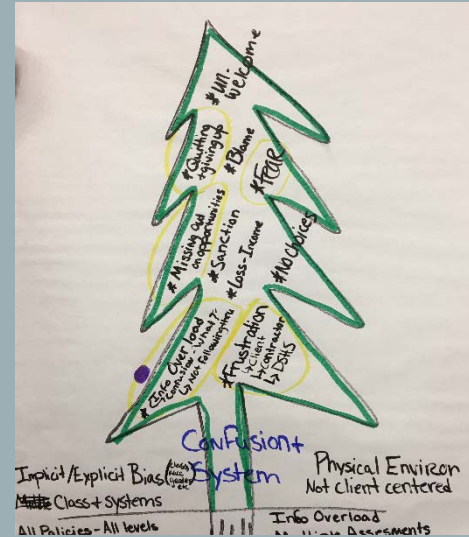 *un-
welcome
*Quitting
+giving up
*Blame
*FEAR
*Missing out
on opportunities
*Sanction
*Loss-Income
*No choices
*Info Overload
↳Confusion-What?
↳Not following thru
*Frustration
↳client
↳contractor
↳DSHS
Confusion+
System
Implicit/Explicit Bias (class,
race,
gender,
etc
Class+Systems
All Policies-All levels
Physical Environ
Not client centered
Info Overload
Multiple Assesments